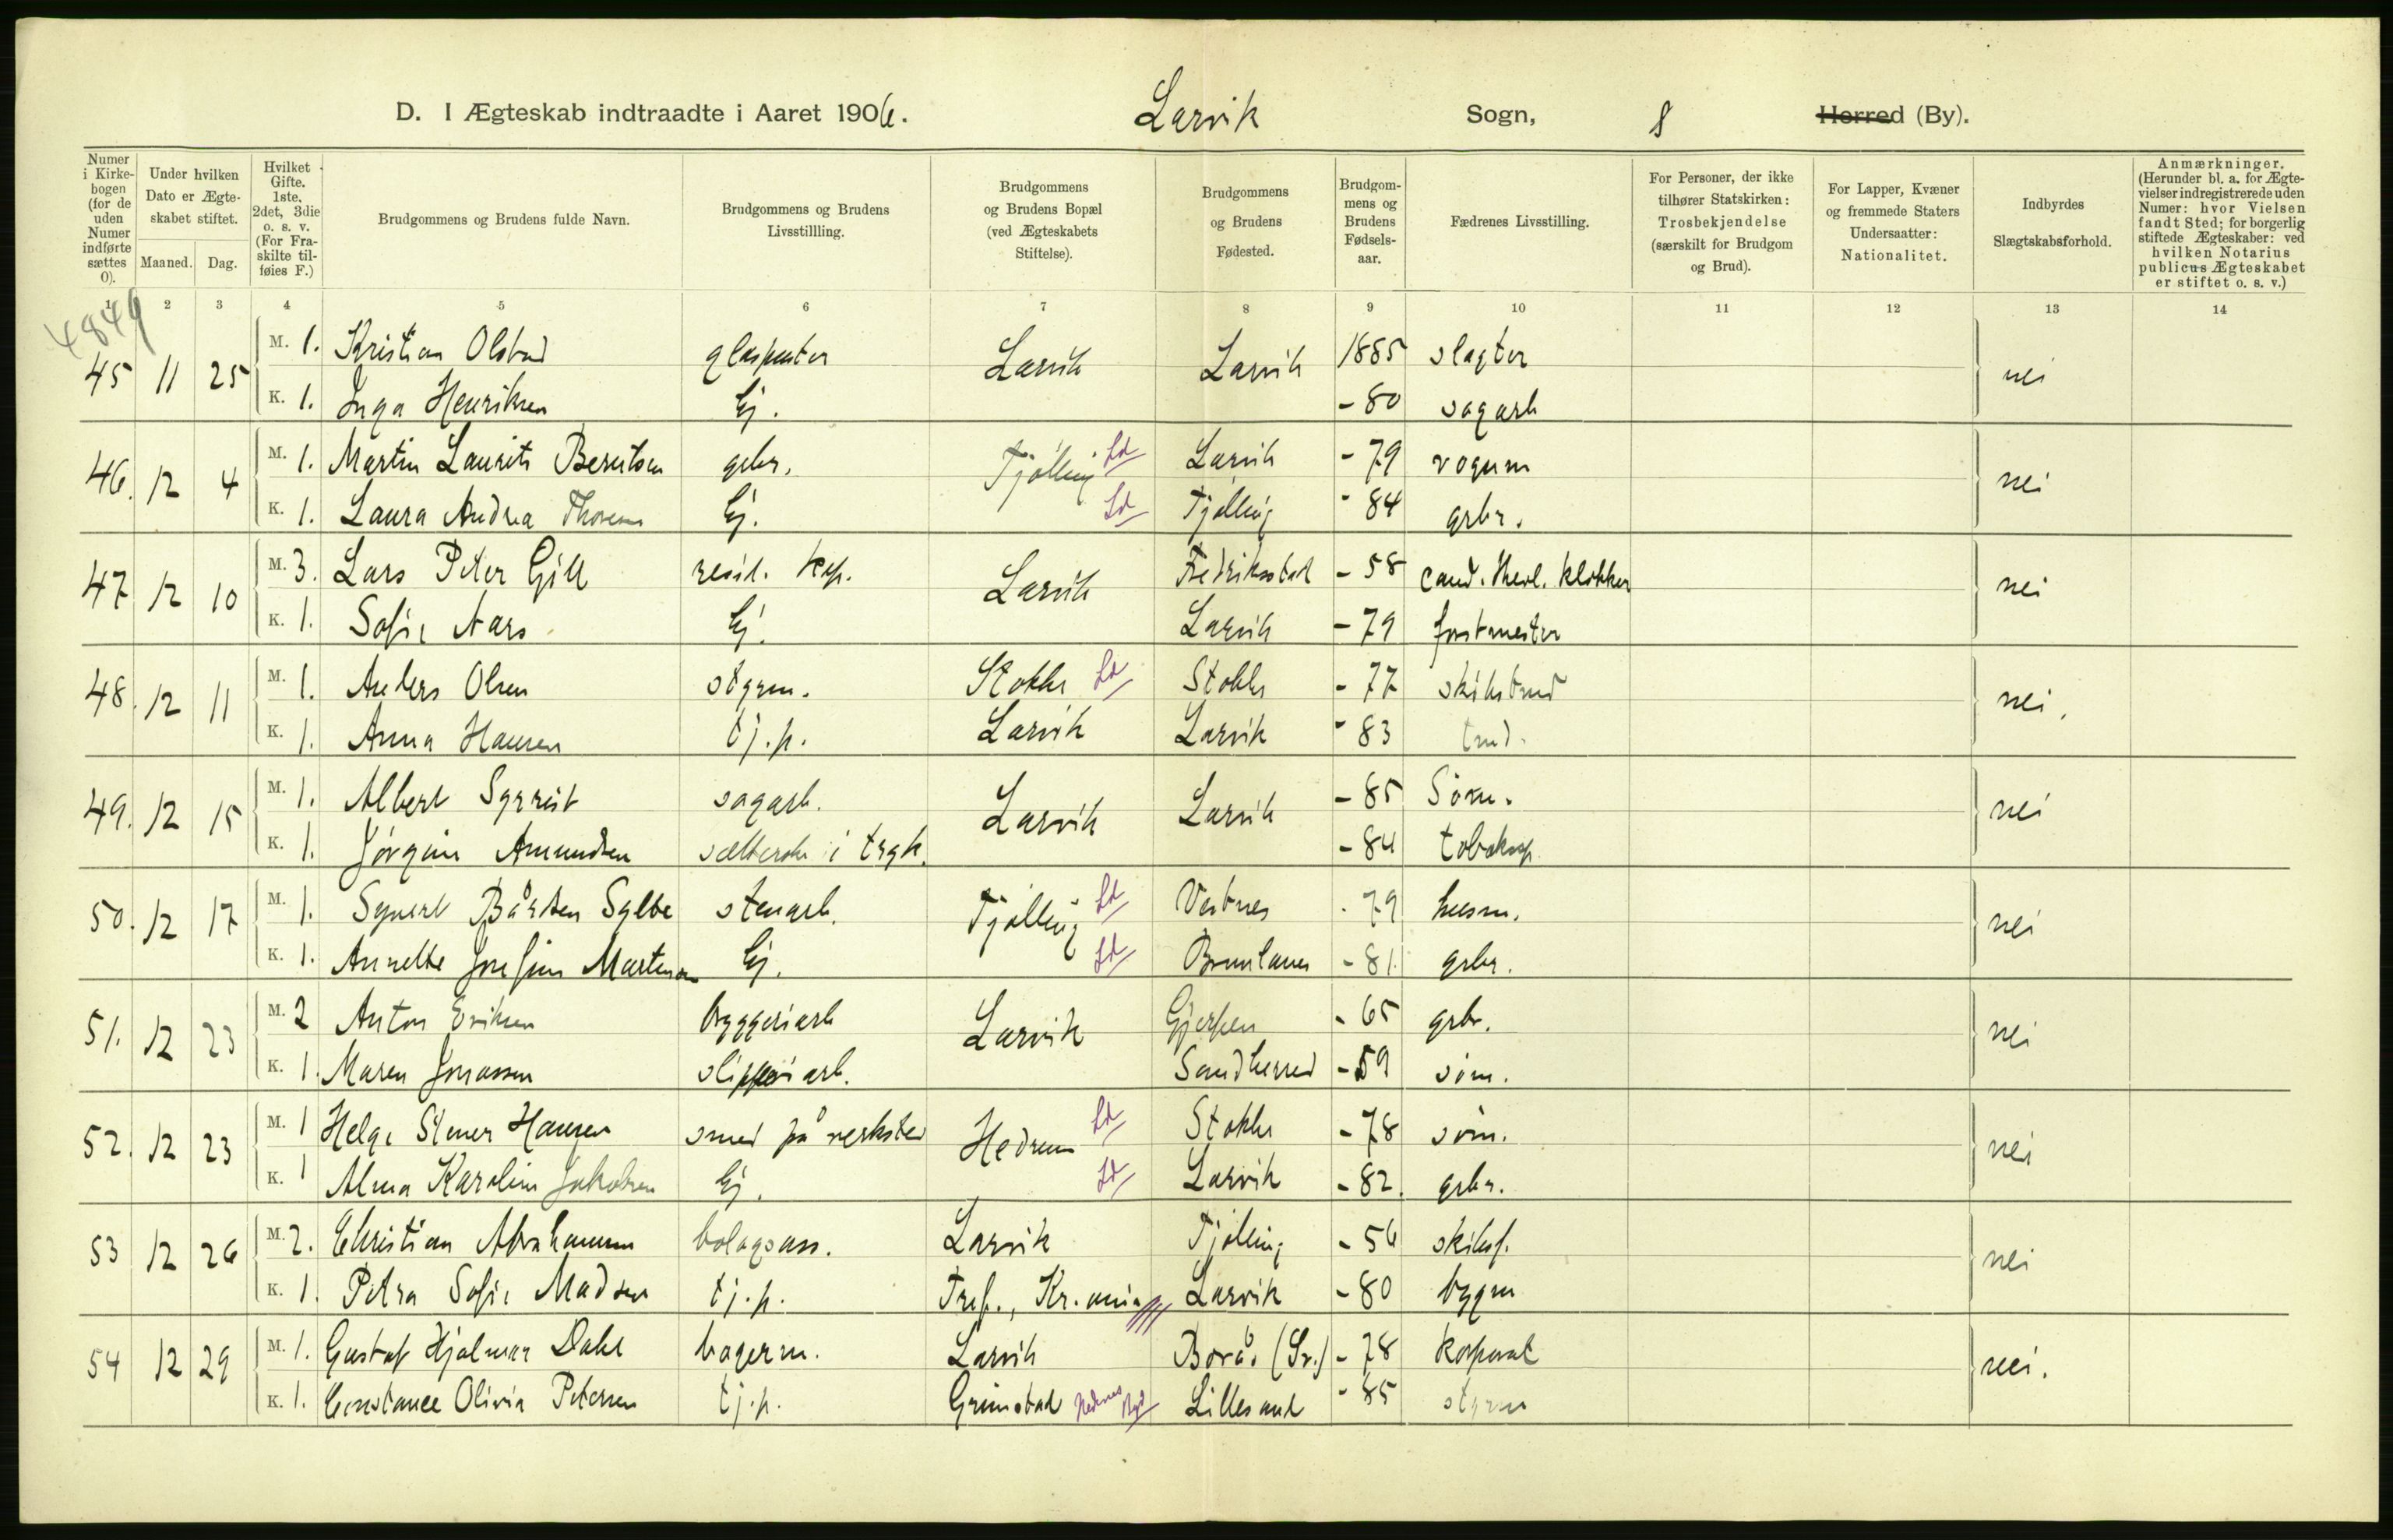 D. I Ægteskab indtraadte i Aaret 1906. Larvik Sogn, 8 Herred (By).
Numer i Kirke-bogen (for de uden Numer indførte sættes 0).
Under hvilken Dato er Ægte-skabet stiftet.
Maaned. Dag.
Hvilket Gifte. 1ste, 2det, 3die o. s. v. (For Fra-skilte til-føies F.)
Brudgommens og Brudens fulde Navn.
Brudgommens og Brudens Livsstillling.
Brudgommens og Brudens Bopæl (ved Ægteskabets Stiftelse).
Brudgommens og Brudens Fødested.
Brudgom-mens og Brudens Fødsels-aar.
Fædrenes Livsstilling.
For Personer, der ikke tilhører Statskirken: Trosbekjendelse (særskilt for Brudgom og Brud).
For Lapper, Kvæner og fremmede Staters Undersaatter: Nationalitet.
Indbyrdes Slægtskabsforhold.
Anmærkninger. (Herunder bl. a. for Ægte-vielser indregistrerede uden Numer: hvor Vielsen fandt Sted; for borgerlig stiftede Ægteskaber: ved hvilken Notarius publicus Ægteskabet er stiftet o. s. v.)
1 2 3 4 5 6 7 8 9 10 11 12 13 14
4849
45 11 25 M. 1. Kristian Olstad glaspuster Larvik Larvik 1885 slagter nei
K. 1. Inga Henriksen Ej. - 80 sagarb
46. 12 4 M. 1. Martin Laurits Berntsen gbr. Tjølling Ld Larvik - 79 vognm nei
K. 1. Laura Andrea Thorsen Ej. Ld Tjølling - 84 grbr.
47 12 10 M. 3. Lars Peter Gill resid. kap. Larvik Fredriksstad - 58 cand. theol. klokker nei
K. 1. Sofie Aars Ej. Larvik - 79 forstmester
48. 12 11 M. 1. Anders Olsen styrm. Stokke Ld Stokke - 77 skibstmd nei.
K. 1. Anna Hansen tj.p. Larvik Larvik - 83 tmd.
49. 12 15 M. 1. Albert Syrrist sagarb. Larvik Larvik - 85 Søm. nei
K. 1. Jørgine Amundsen sætterske i tryk. - 84 tobaksp
50. 12 17 M. 1. Synert Bårdsen Sylte stenarb. Tjølling Ld Vestnes - 79 husm. nei
K. 1. Annette Josefine Martinsen Ej. Ld Brunlanes - 81 grbr.
51. 12 23 M. 2 Anton Eriksen bryggeriarb Larvik Gjerpen - 65 grbr. nei
K. 1. Maren Jonassen sliperiarb. Sandherred - 59 søm.
52. 12 23 M. 1 Helge Stener Hansen smed på verksted Hedrum Ld Stokke - 78 søm. nei
K. 1 Alma Karoline Jakobsen Ej. Ld Larvik - 82. grbr.
53 12 26 M. 2. Christian Abrahamsen bolagsass. Larvik Tjølling - 56 skibsf. nei
K. 1. Petra Sofie Madsen tj.p. Tref., Kr.ania Larvik - 80 bygm
54 12 29 M. 1. Gustaf Hjalmar Dahl bagerm. Larvik Borås (Sv.) - 78 korporal nei.
K. 1. Constance Olivia Petersen tj.p. Grimstad Nedenes Lillesand - 85 styrm